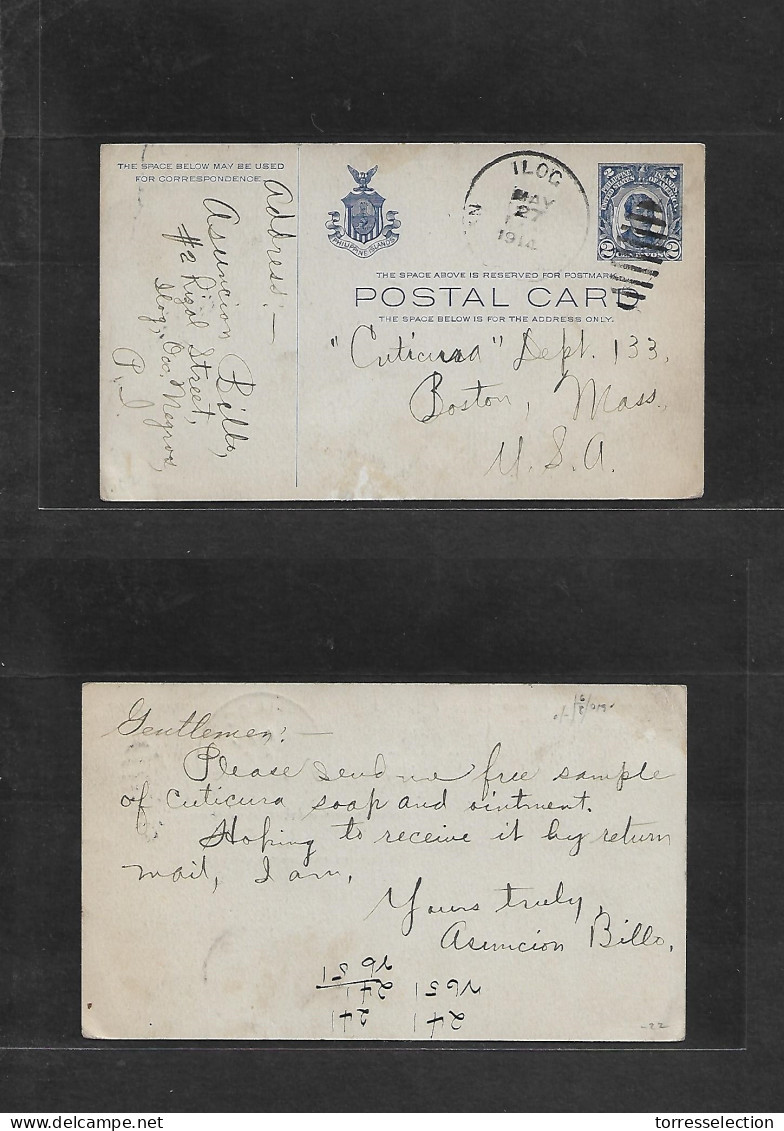 THE SPACE BELOW MAY BE USED
FOR CORRESPONDENCE
Address:—
Asuncion Billo,
#2 Rizal Street,
Ilog, Occ. Negros,
P. I.
PHILIPPINE ISLANDS
ILOG
MAY
27
1914
2 PHILIPPINE ISLANDS 2
UNITED STATES OF AMERICA
2 2
THE SPACE ABOVE IS RESERVED FOR POSTMARK
POSTAL CARD
THE SPACE BELOW IS FOR THE ADDRESS ONLY.
"Cuticura" Dept. 133,
Boston, Mass.,
U. S. A.
Gentlemen:—
Please send me free sample
of cuticura soap and ointment.
Hoping to receive it by return
mail, I am,
Yours truly,
Asuncion Billo.
241 241
-22
torresselection